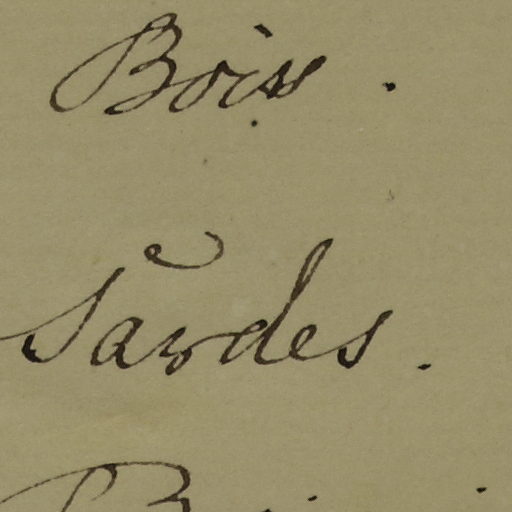 Boiss .
Sardes .